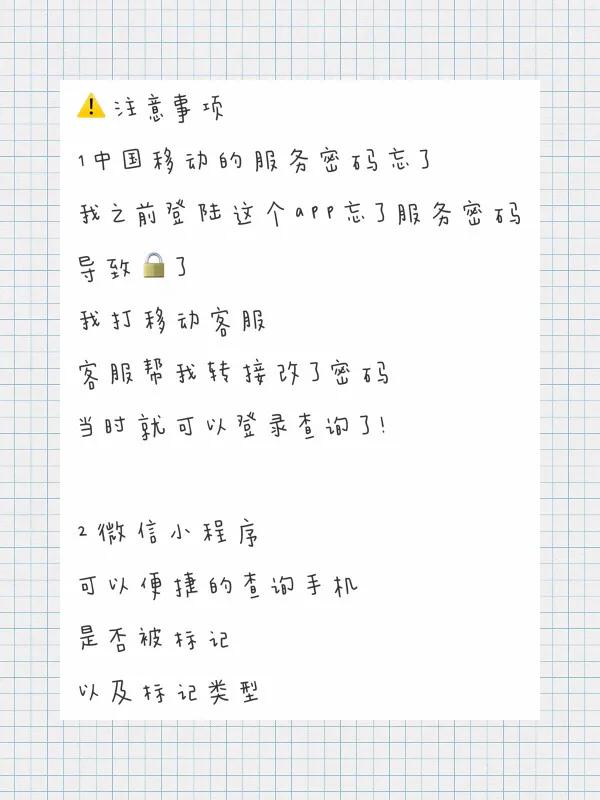 ⚠️注意事项
1中国移动的服务密码忘了
我之前登陆这个app忘了服务密码
导致🔒了
我打移动客服
客服帮我转接改了密码
当时就可以登录查询了!
2微信小程序
可以便捷的查询手机
是否被标记
以及标记类型